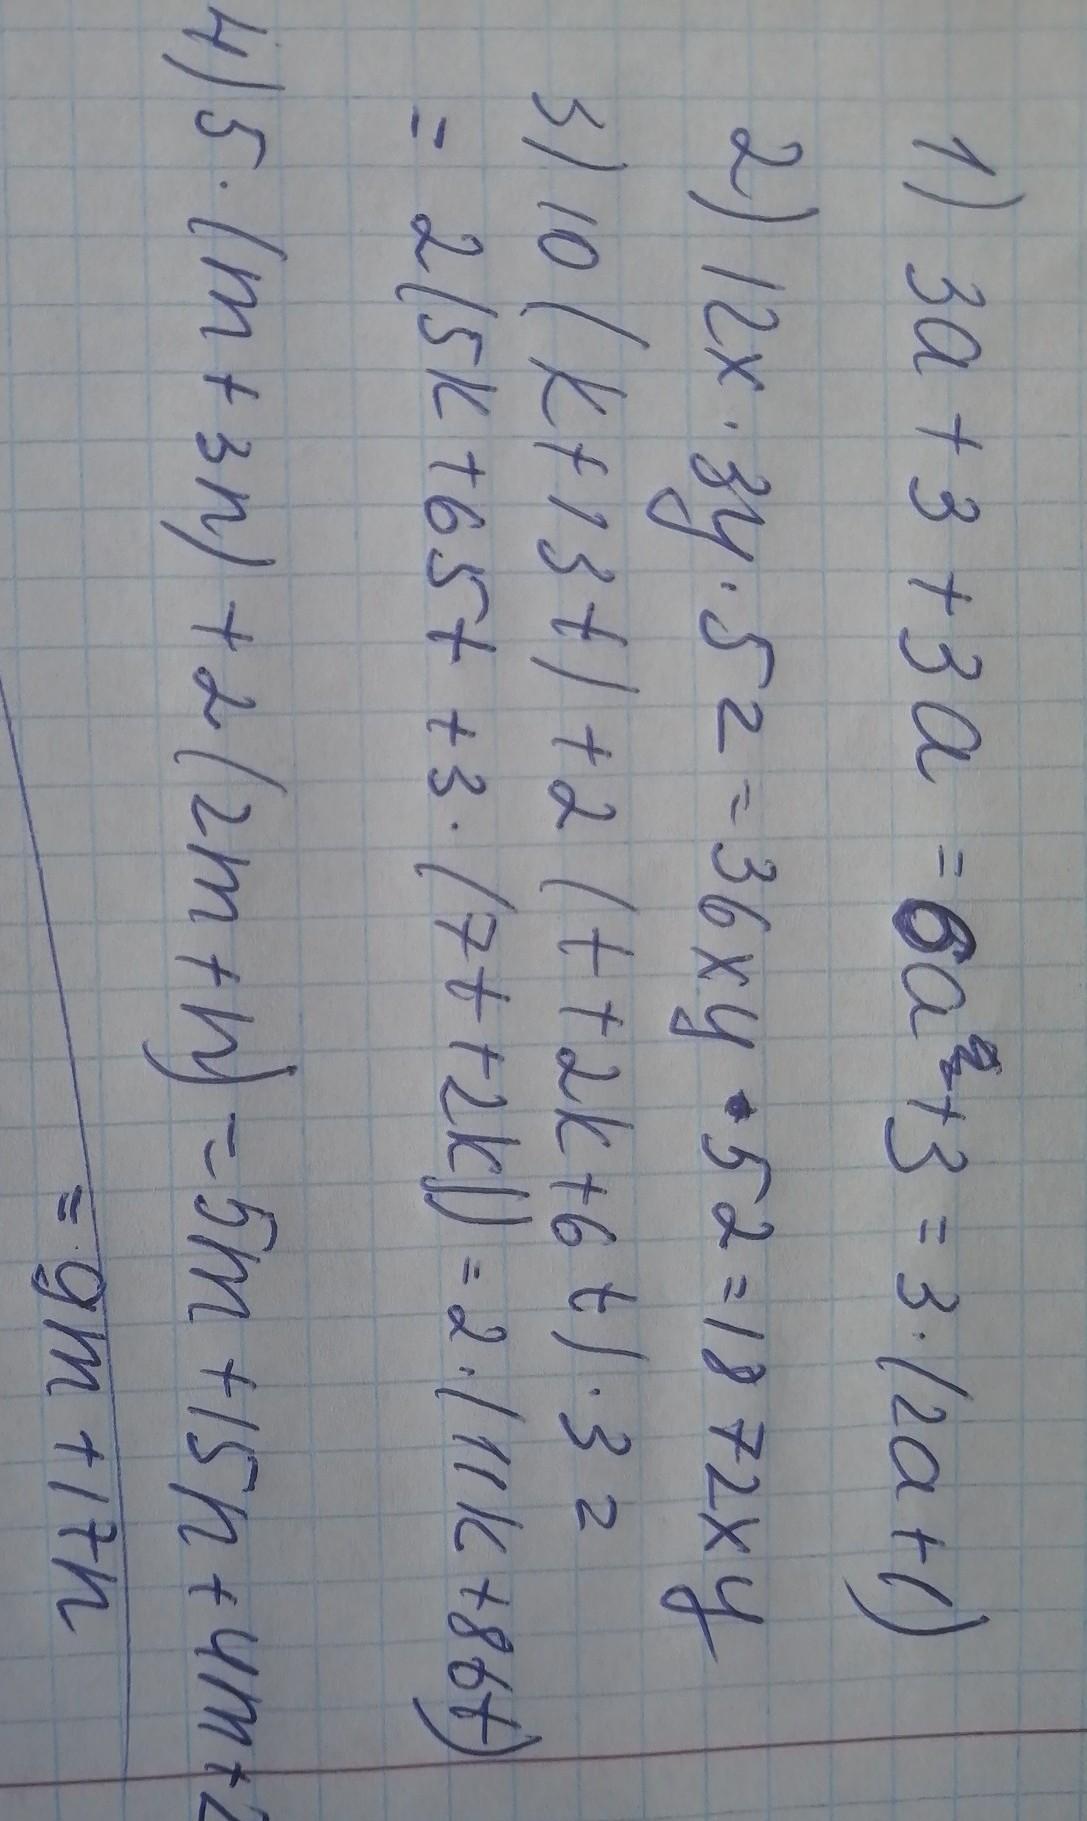 1) 3a + 3 + 3a = 6a² + 3 = 3 · (2a + 1)
2) 12x · 3y · 52 = 36xy · 52 = 1872xy
3) 10 (k + 13t) + 2 (t + 2k + 6t) · 3 =
= 2 (5k + 65t + 3 · (7t + 2k)) = 2 · (11k + 86t)
4) 5 · (m + 3n) + 2 (2m + n) = 5m + 15n + 4m + 2
= 9m + 17n